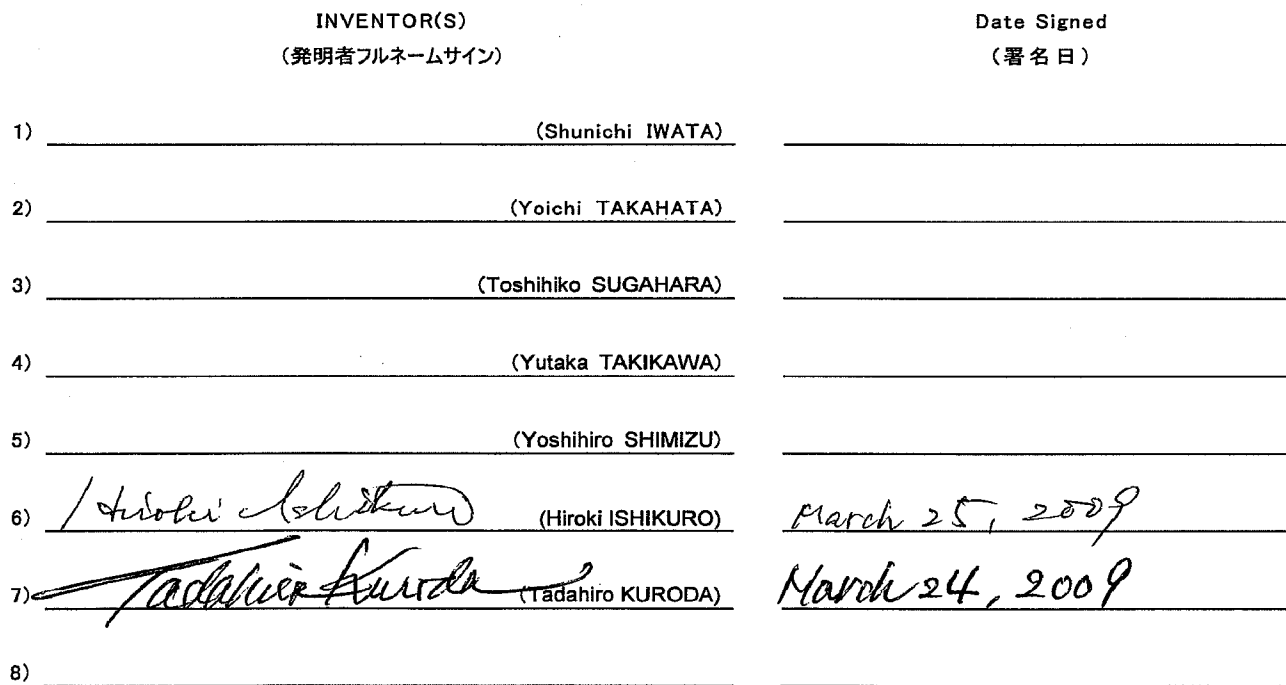 INVENTOR(S) Date Signed
(発明者フルネームサイン) (署名日)
1) (Shunichi IWATA)
2) (Yoichi TAKAHATA)
3) (Toshihiko SUGAHARA)
4) (Yutaka TAKIKAWA)
5) (Yoshihiro SHIMIZU)
6) Hiroki Ishikuro (Hiroki ISHIKURO) March 25, 2009
7) Tadahiro Kuroda (Tadahiro KURODA) March 24, 2009
8)